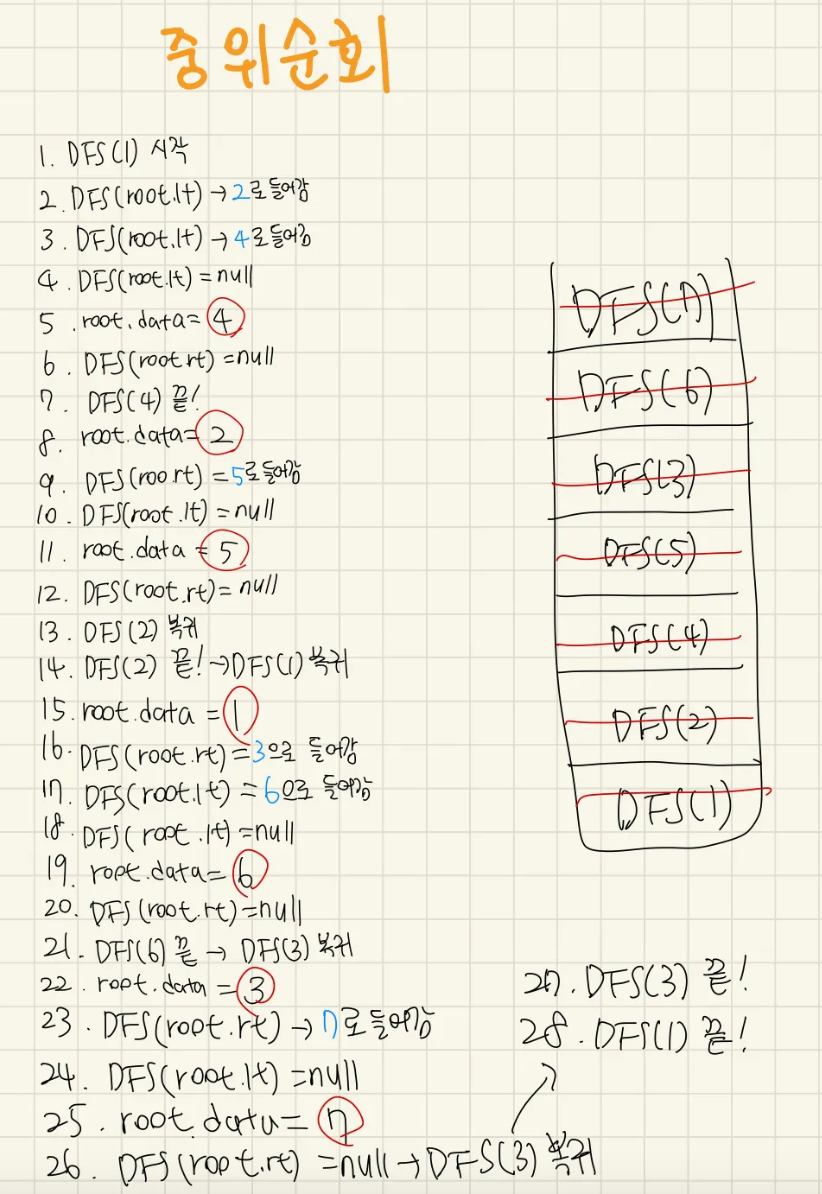 중위순회
1. DFS(1) 시작
2. DFS(root.lt) → 2로 들어감
3. DFS(root.lt) → 4로 들어감
4. DFS(root.lt) = null
5. root.data = 4
6. DFS(root rt) = null
7. DFS(4) 끝!
8. root.data = 2
9. DFS(roo rt) = 5로 들어감
10. DFS(root.lt) = null
11. root.data = 5
12. DFS(root.rt) = null
13. DFS(2) 복귀
14. DFS(2) 끝! → DFS(1) 복귀
15. root.data = 1
16. DFS(root.rt) = 3으로 들어감
17. DFS(root.lt) = 6으로 들어감
18. DFS(root.lt) = null
19. root.data = 6
20. DFS(root.rt) = null
21. DFS(6) 끝 → DFS(3) 복귀
22. root.data = 3
23. DFS(root.rt) → 7로 들어감
24. DFS(root.lt) = null
25. root.data = 7
26. DFS(root.rt) = null → DFS(3) 복귀
27. DFS(3) 끝!
28. DFS(1) 끝!
DFS(7)
DFS(6)
DFS(3)
DFS(5)
DFS(4)
DFS(2)
DFS(1)